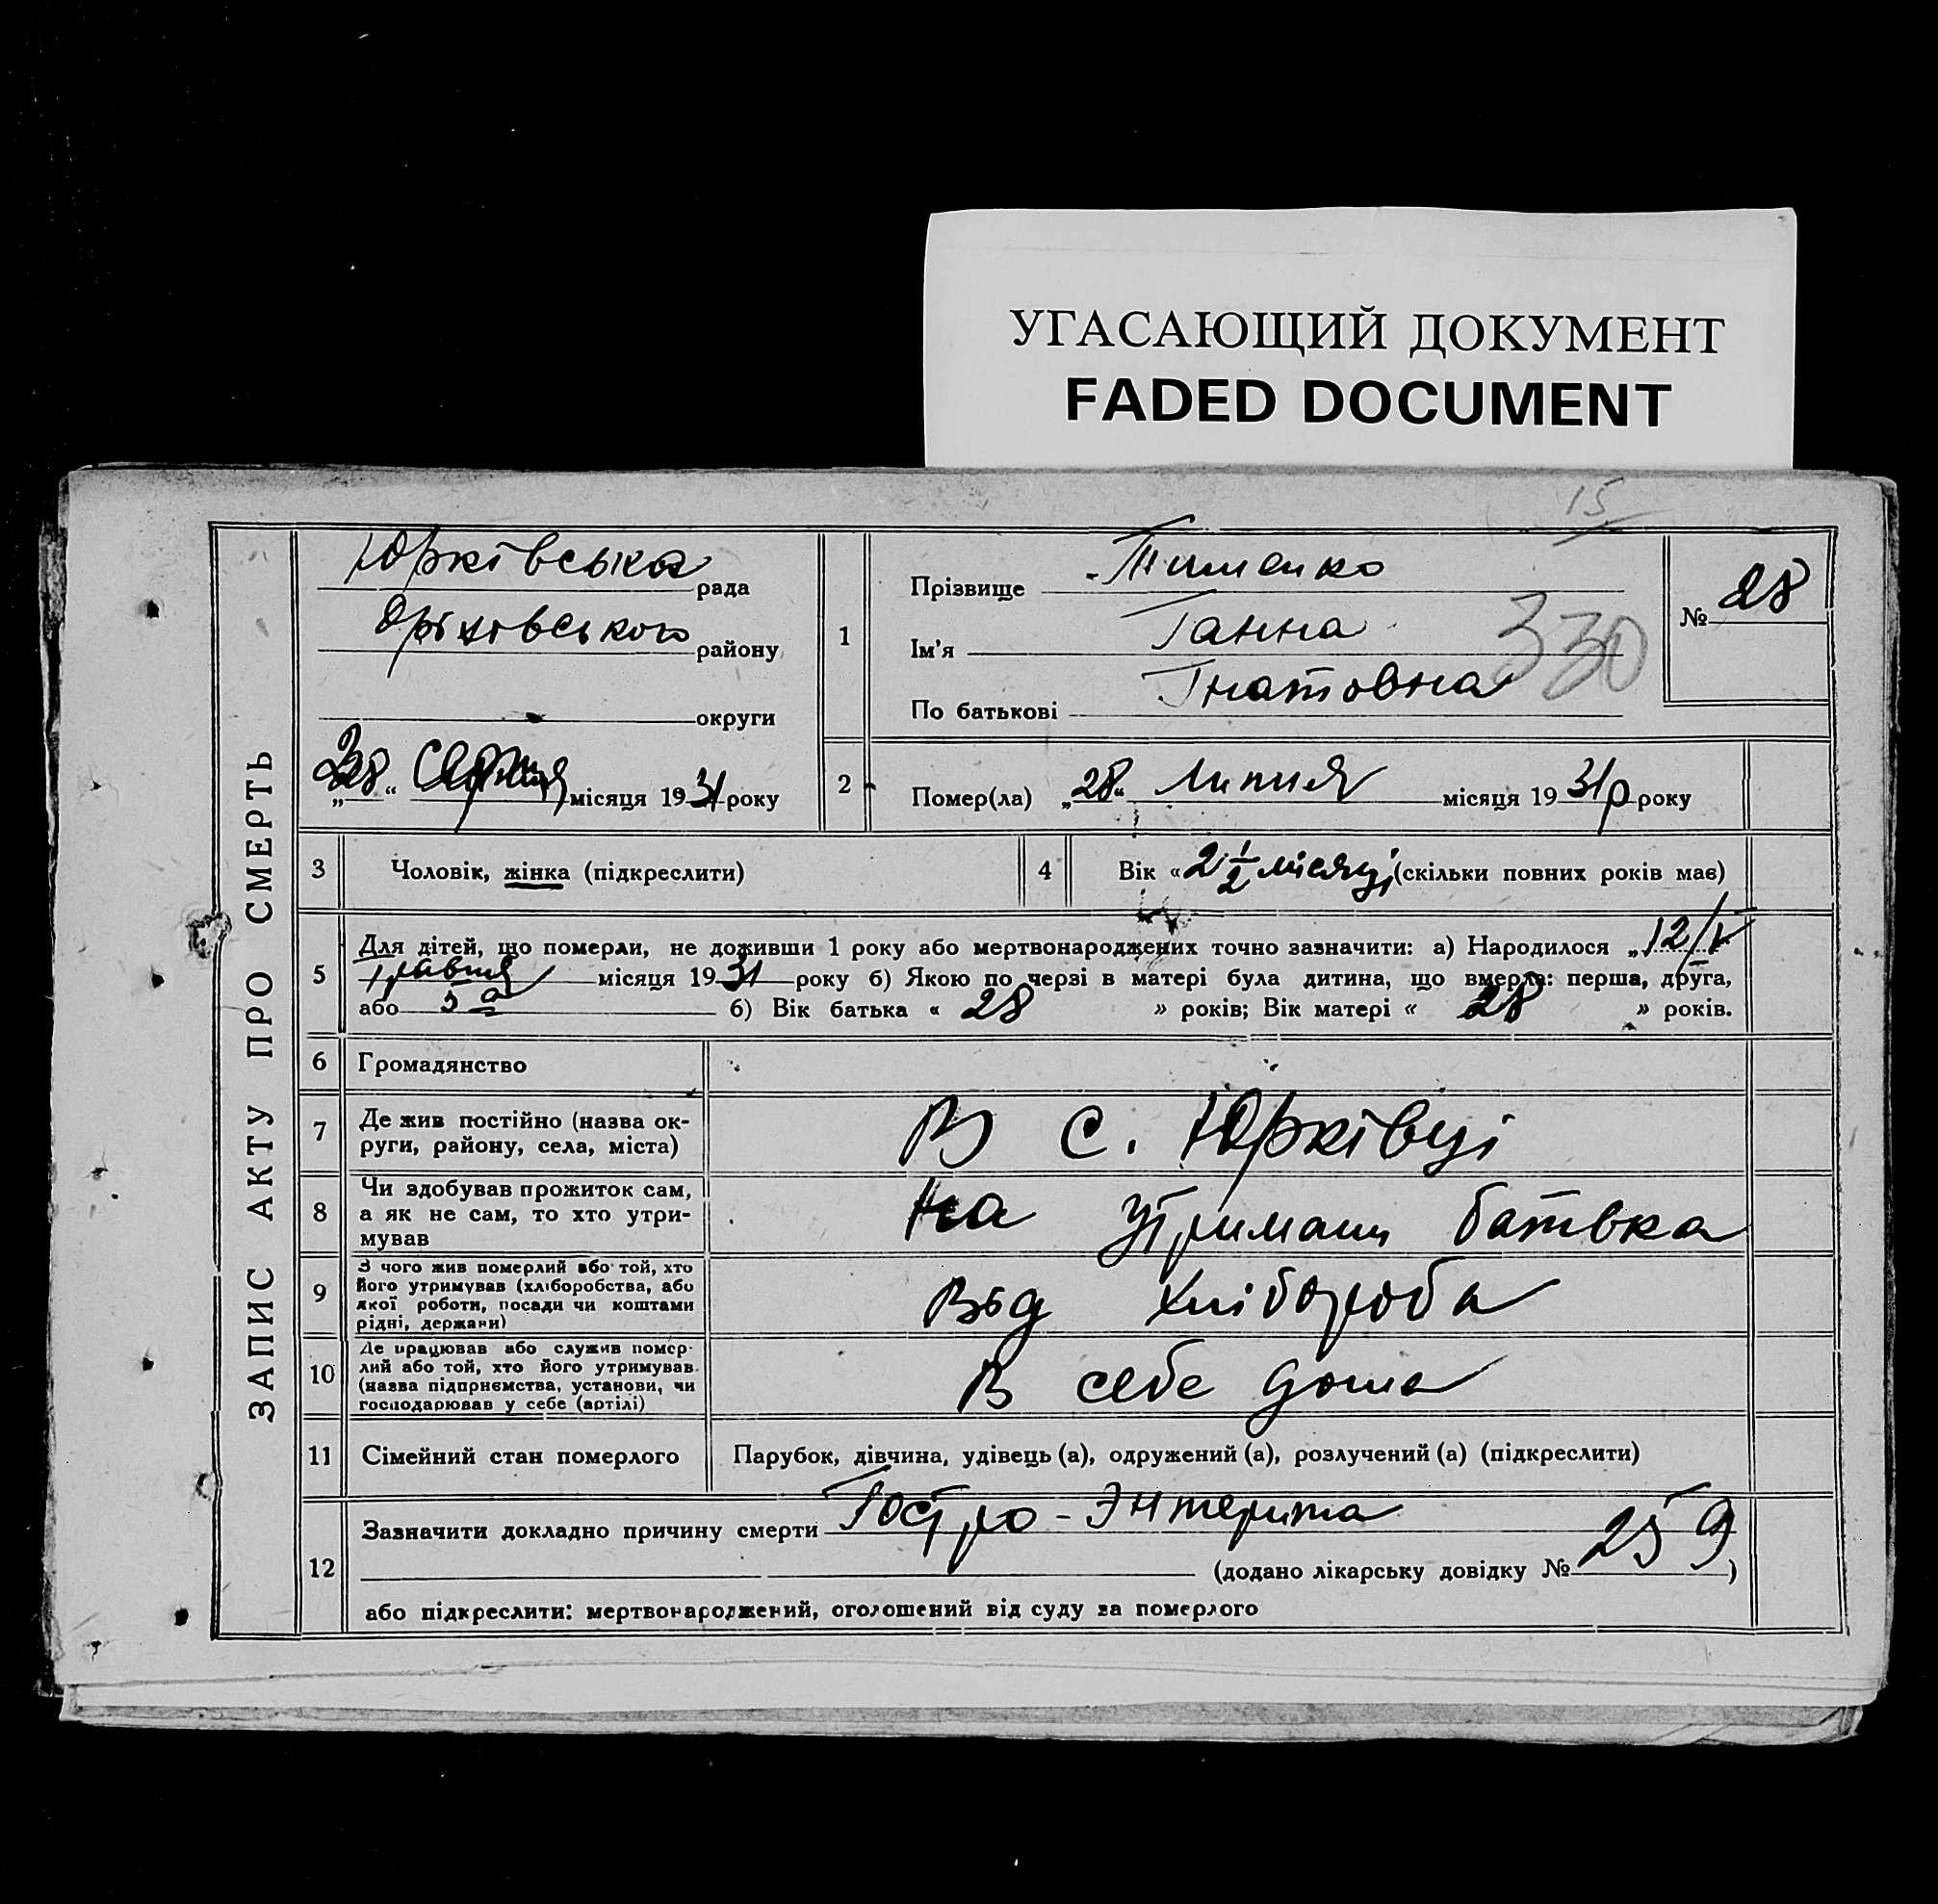 УГАСАЮЩИЙ ДОКУМЕНТ
FADED DOCUMENT
15
ЗАПИС АКТУ ПРО СМЕРТЬ
Юрківська рада
Оріхівського району
округи
28 "Серпня місяця 1931 року
1
Прізвище Тименко
Ім'я Ганна
По батькові Гнатовна
330
№ 28
2
Помер(ла) „28" Липня місяця 1931р року
3 Чоловік, жінка (підкреслити)
4 Вік «2 1/2 місяці (скільки повних років має)
5 Для дітей, що померли, не доживши 1 року або мертвонароджених точно зазначити: а) Народилося „12/V
травня місяця 1931 року б) Якою по черзі в матері була дитина, що вмерла: перша, друга,
або 5а б) Вік батька « 28 » років; Вік матері « 28 » років.
6 Громадянство
7 Де жив постійно (назва ок-
руги, району, села, міста)
В с. Юрківці
8 Чи здобував прожиток сам,
а як не сам, то хто утри-
мував
на утримани батька
9 З чого жив померлий або той, хто
його утримував (хліборобства, або
якої роботи, посади чи коштами
рідні, держави)
Від хлібороба
10 Де працював або служив помер-
лий або той, хто його утримував
(назва підприємства, установи, чи
господарював у себе (артілі)
В себе дома
11 Сімейний стан померлого
Парубок, дівчина, удівець (а), одружений (а), розлучений (а) (підкреслити)
12 Зазначити докладно причину смерти Гостро-Энтерита
(додано лікарську довідку № 259)
або підкреслити: мертвонароджений, оголошений від суду за померлого